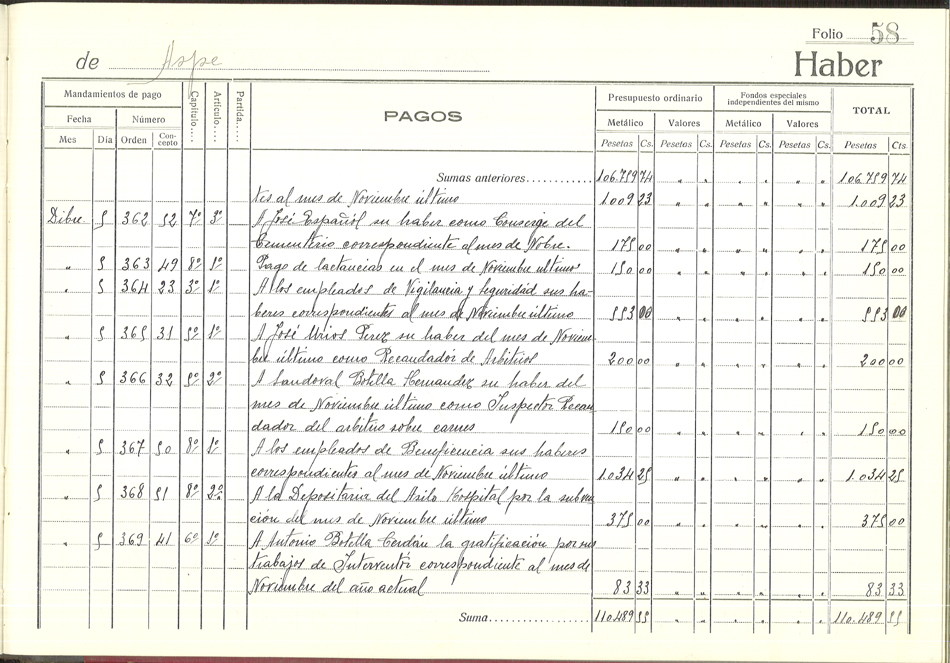 Folio 58
de Aspe
Haber
Mandamientos de pago
Capítulo....
Artículo....
Partida....
PAGOS
Presupuesto ordinario
Fondos especiales independientes del mismo
TOTAL
Fecha Número
Metálico Valores Metálico Valores
Mes Día Orden Concepto
Pesetas Cs. Pesetas Cs. Pesetas Cs. Pesetas Cs. Pesetas Cts
Sumas anteriores............ 106.759 74 " " " " " " 106.759 74
tes al mes de Noviembre último 1009 23 " " " " " " 1.009 23
Dibre 5 362 52 7º 3º A José Español su haber como Conserge del
Cementerio correspondiente al mes de Nobre. 175 00 " " " " " " 175 00
" 5 363 49 8º 1º Pago de lactancias en el mes de Noviembre último 150 00 " " " " " " 150 00
" 5 364 23 3º 1º A los empleados de Vigilancia y Seguridad sus ha-
beres correspondientes al mes de Noviembre último 553 00 " " " " " " 553 00
" 5 365 31 5º 1º A José Urios Perez su haber del mes de Noviem-
bre último como Recaudador de Arbitrios 200 00 " " " " " " 200 00
" 5 366 32 5º 2º A Sandoval Botella Hernandez su haber del
mes de Noviembre último como Inspector Recau
dador del arbitrio sobre carnes 150 00 " " " " " " 150 00
" 5 367 50 8º 1º A los empleados de Beneficencia sus haberes
correspondientes al mes de Noviembre último 1.034 25 " " " " " " 1.034 25
" 5 368 51 8º 2º A la Depositaria del Asilo Hospital por la subven
ción del mes de Noviembre último 375 00 " " " " " " 375 00
" 5 369 41 6º 1º A Antonio Botella Cerdán la gratificación por sus
trabajos de Interventór correspondiente al mes de
Noviembre del año actual 83 33 " " " " " " 83 33
Suma................... 110.489 55 " " " " " " 110.489 55